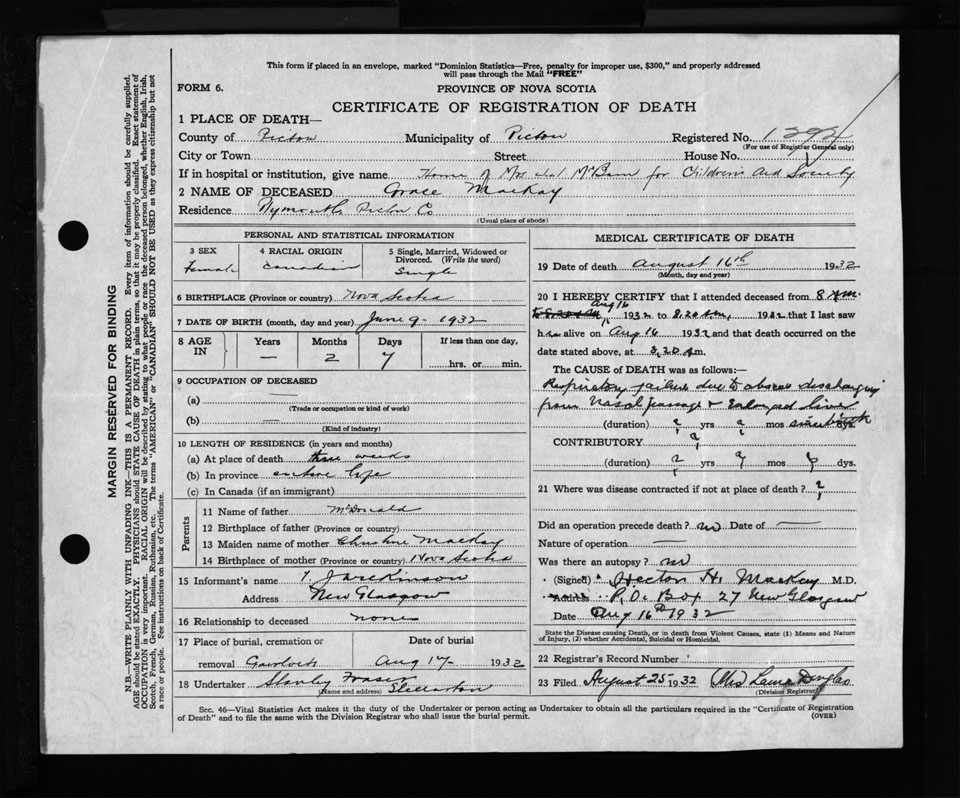 This form if placed in an envelope, marked "Dominion Statistics—Free, penalty for improper use, $300," and properly addressed
will pass through the Mail "FREE"
FORM 6.
PROVINCE OF NOVA SCOTIA
CERTIFICATE OF REGISTRATION OF DEATH
MARGIN RESERVED FOR BINDING
N.B.—WRITE PLAINLY WITH UNFADING INK—THIS IS A PERMANENT RECORD. Every item of information should be carefully supplied.
AGE should be stated EXACTLY. PHYSICIANS should STATE CAUSE OF DEATH in plain terms, so that it may be properly classified. Exact statement of
OCCUPATION is very important. RACIAL ORIGIN will be described by stating to what people or race the deceased person belonged, whether English, Irish,
Scotch, French, German, Russian, Ruthenian, etc. The terms "AMERICAN" or "CANADIAN" SHOULD NOT BE USED as they express citizenship but not
a race or people. See instructions on back of Certificate.
1 PLACE OF DEATH—
County of Pictou Municipality of Pictou Registered No. 1292
(For use of Registrar General only)
City or Town Street House No.
If in hospital or institution, give name Home of Mrs McBain for Childrens Aid Society
2 NAME OF DECEASED Grace MacKay
Residence Plymouth, Pictou Co
(Usual place of abode)
PERSONAL AND STATISTICAL INFORMATION
3 SEX
Female
4 RACIAL ORIGIN
Canadian
5 Single, Married, Widowed or
Divorced. (Write the word)
Single
6 BIRTHPLACE (Province or country) Nova Scotia
7 DATE OF BIRTH (month, day and year) June 9 - 1932
8 AGE IN
Years Months Days If less than one day,
— 2 7 hrs. or min.
9 OCCUPATION OF DECEASED
(a) —
(Trade or occupation or kind of work)
(b) —
(Kind of industry)
10 LENGTH OF RESIDENCE (in years and months)
(a) At place of death three weeks
(b) In province entire life
(c) In Canada (if an immigrant)
Parents
11 Name of father McDonald
12 Birthplace of father (Province or country)
13 Maiden name of mother Christine MacKay
14 Birthplace of mother (Province or country) Nova Scotia
15 Informant's name
Address New Glasgow
16 Relationship to deceased none
17 Place of burial, cremation or Date of burial
removal Gairloch Aug 17 - 1932
18 Undertaker Stanley Fraser
(Name and address) Stellarton
MEDICAL CERTIFICATE OF DEATH
19 Date of death August 16th 1932
(Month, day and year)
20 I HEREBY CERTIFY that I attended deceased from 8 A.M.
Aug 16 1932 to 8.20 A.M., 1932 that I last saw
her alive on Aug 16 1932 and that death occurred on
date stated above, at 8.20 A.m.
The CAUSE of DEATH was as follows:—
Respiratory failure due to abscess discharging
from Nasal passage & Enlarged liver
(duration) ? yrs ? mos since birth dys.
CONTRIBUTORY ?
(duration) ? yrs ? mos ? dys.
21 Where was disease contracted if not at place of death? ?
Did an operation precede death? no Date of —
Nature of operation —
Was there an autopsy? no
(Signed) Hector H. MacKay M.D.
Address P.O. Box 27 New Glasgow
Date Aug 16th 1932
State the Disease causing Death, or in death from Violent Causes, state (1) Means and Nature
of Injury, (2) whether Accidental, Suicidal or Homicidal.
22 Registrar's Record Number
23 Filed August 25 - 1932 (Mrs) Laura Douglas
(Division Registrar)
Sec. 46—Vital Statistics Act makes it the duty of the Undertaker or person acting as Undertaker to obtain all the particulars required in the "Certificate of Registration
of Death" and to file the same with the Division Registrar who shall issue the burial permit.
(OVER)